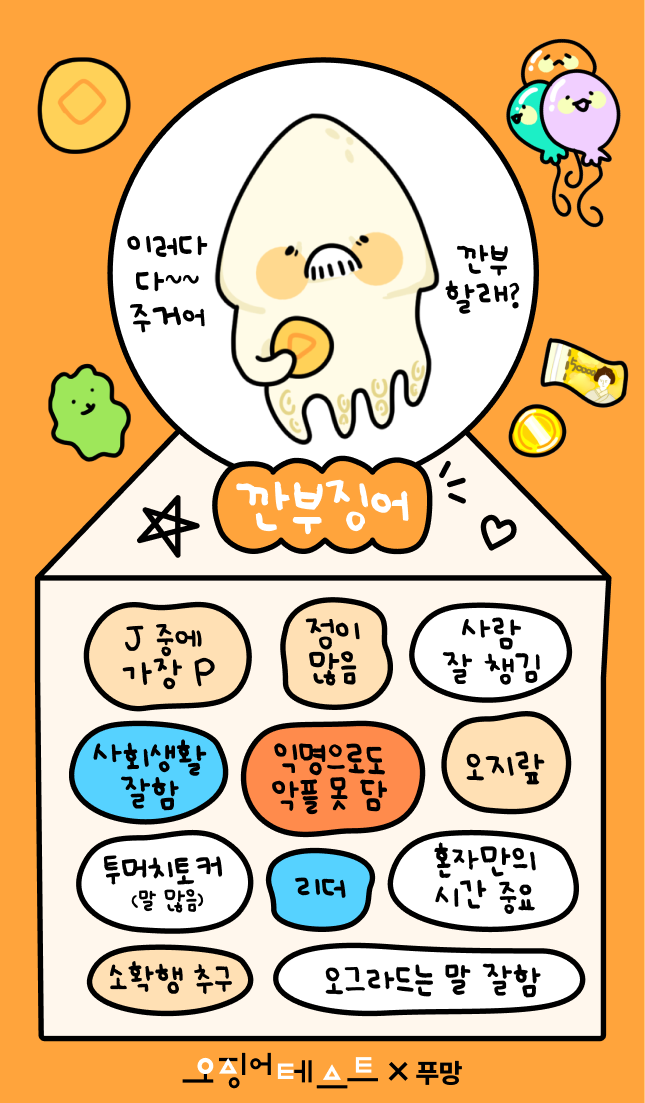 이러다
다~~
주거어
깐부
할래?
50000
깐부징어
J 중에
가장 P
정이
많음
사람
잘 챙김
사회생활
잘함
익명으로도
악플 못 담
오지랖
투머치토커
(말 많음)
리더
혼자만의
시간 중요
소확행 추구
오그라드는 말 잘함
오징어테스트 × 푸망